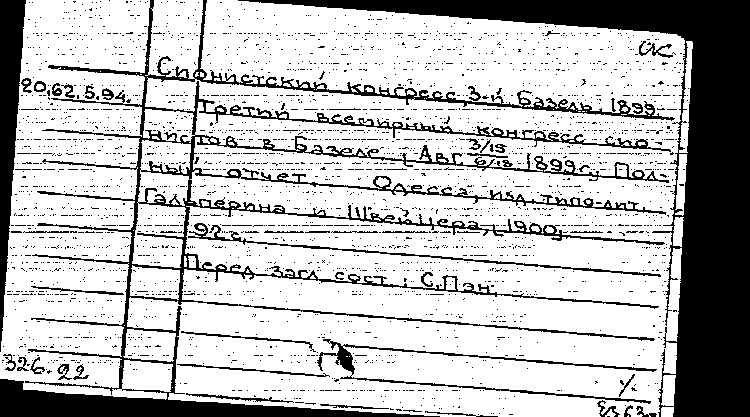 ОС
Сионистский конгресс, 3-й. Базель. 1899.
20.62.5.94.
Третий всемирный конгресс сио-
нистов в Базеле [Авг. 3/15 6/18 1899 г.]. Пол-
ный отчет. Одесса, изд. типо-лит.
Гальперина и Швейцера, [1900].
92 с.
Перед загл. сост.: С. Пэн.
326-92